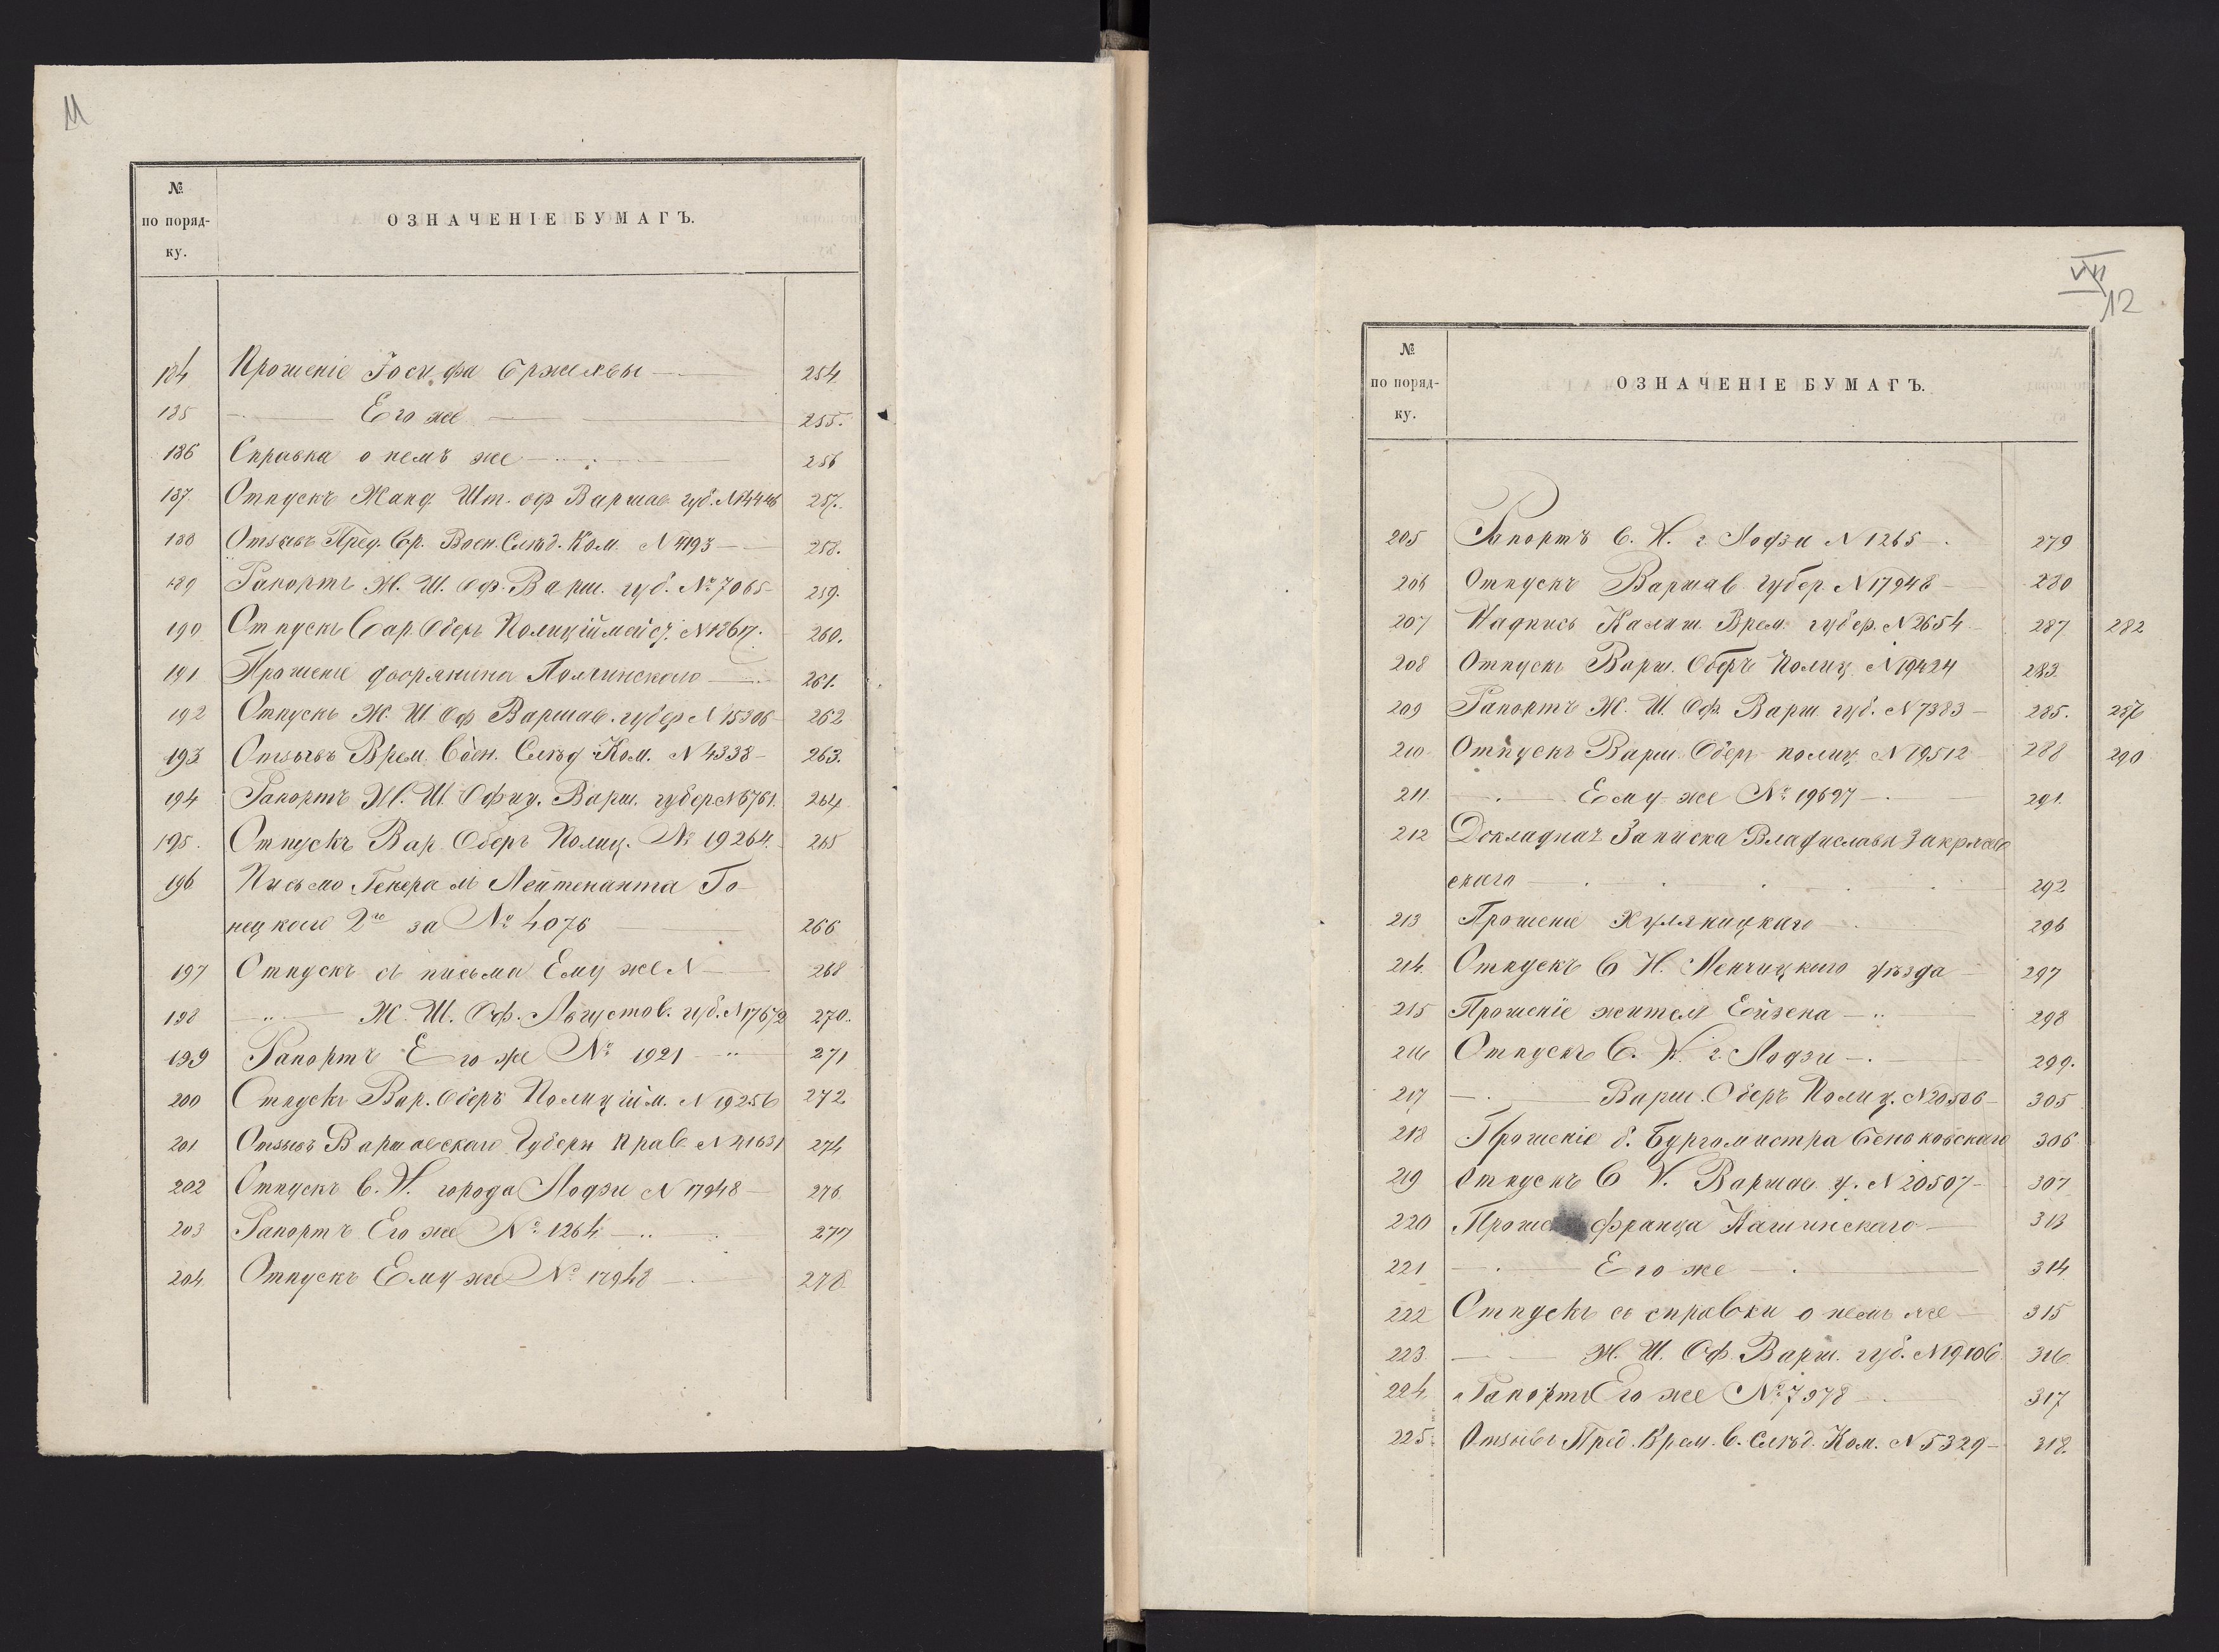 11
№
по поряд-
ку.
ОЗНАЧЕНІЕ БУМАГЪ.
184 Прошеніе Іосифа Бржилвы — 254
185 — Его же — 255.
186 Справка о немъ же — 256
187. Отпускъ Жанд. Шт. оф Варшав. губ. N 14446 257.
188 Отзывъ Пред. Вр. Воен. Слѣд. Ком. N 4193 — 258.
189 Рапортъ Ж. Ш. Оф. Варш. губ. № 7065 — 259.
190 Отпускъ Вар. Оберъ Полиціймейст. N 18617. 260.
191 Прошеніе дворянина — 261.
192 Отпускъ Ж. Ш. Оф Варшав. губер N 15306 — 262
193 Отзывъ Врем. Воен. Слѣд Ком. N 4338 — 263.
194 Рапортъ Ж. Ш. Офиц. Варш. губер N 6761. 264
195. Отпускъ Вар. Оберъ Полиц. № 19264. 265
196 Письмо Генералъ Лейтенанта Го-
нецкаго 2го за № 4076 — 266
197 Отпускъ съ письма Ему же N — 268
198 — Ж. Ш. Оф. Августов. губ. N 17672 270.
199 Рапортъ Его же № 1921 — 271
200 Отпускъ Вар. Оберъ Полиціим. N 19256 272
201 Отзывъ Варшавскаго Губерн Прав. N 41631 274
202 Отпускъ В. Н. города Лодзи N 17948 — 276
203 Рапортъ Его же № 1264 — 277
204 Отпускъ Ему же № 17948 — 278
VII
12
№
по поряд-
ку.
ОЗНАЧЕНІЕ БУМАГЪ.
205 Рапортъ В. Н. г Лодзи N 1265 — 279
206 Отпускъ Варшав. губер. N 17948 — 280
207 Надпись Калиш. Врем. губер. N 2654 287 282
208 Отпускъ Варш. Оберъ Полиц. N 19424 283
209 Рапортъ Ж. Ш. Оф. Варш. губ. N 7383 — 285. 287
210 Отпускъ Варш. Оберъ полиц. N 19512 288 290
211. — Ему же № 19697 — 291.
212 Докладная Записка Владислава Закржев
скаго — 292
213 Прошеніе — 296
214 Отпускъ В Н. Ленчицкаго уѣзда — 297
215 Прошеніе жителя Ейзена — 298
216 Отпускъ В. Н. г. Лодзи — 299.
217 — Варш. Оберъ Полиц. N 20506 — 305
218 Прошеніе б. Бургомистра Беньковскаго 306
219 Отпускъ В Н. Варшав. у. N 20507 — 307
220 Прошеніе Франца Кашинскаго — 313
221 — Его же — 314
222 Отпускъ съ справки о немъ же — 315
223 — Ж. Ш. Оф. Варш. губ. N 19106 316
224 Рапортъ Его же № 7978 — 317
225. Отзывъ Пред. Врем. В. Слѣд. Ком. N 5329 — 318.